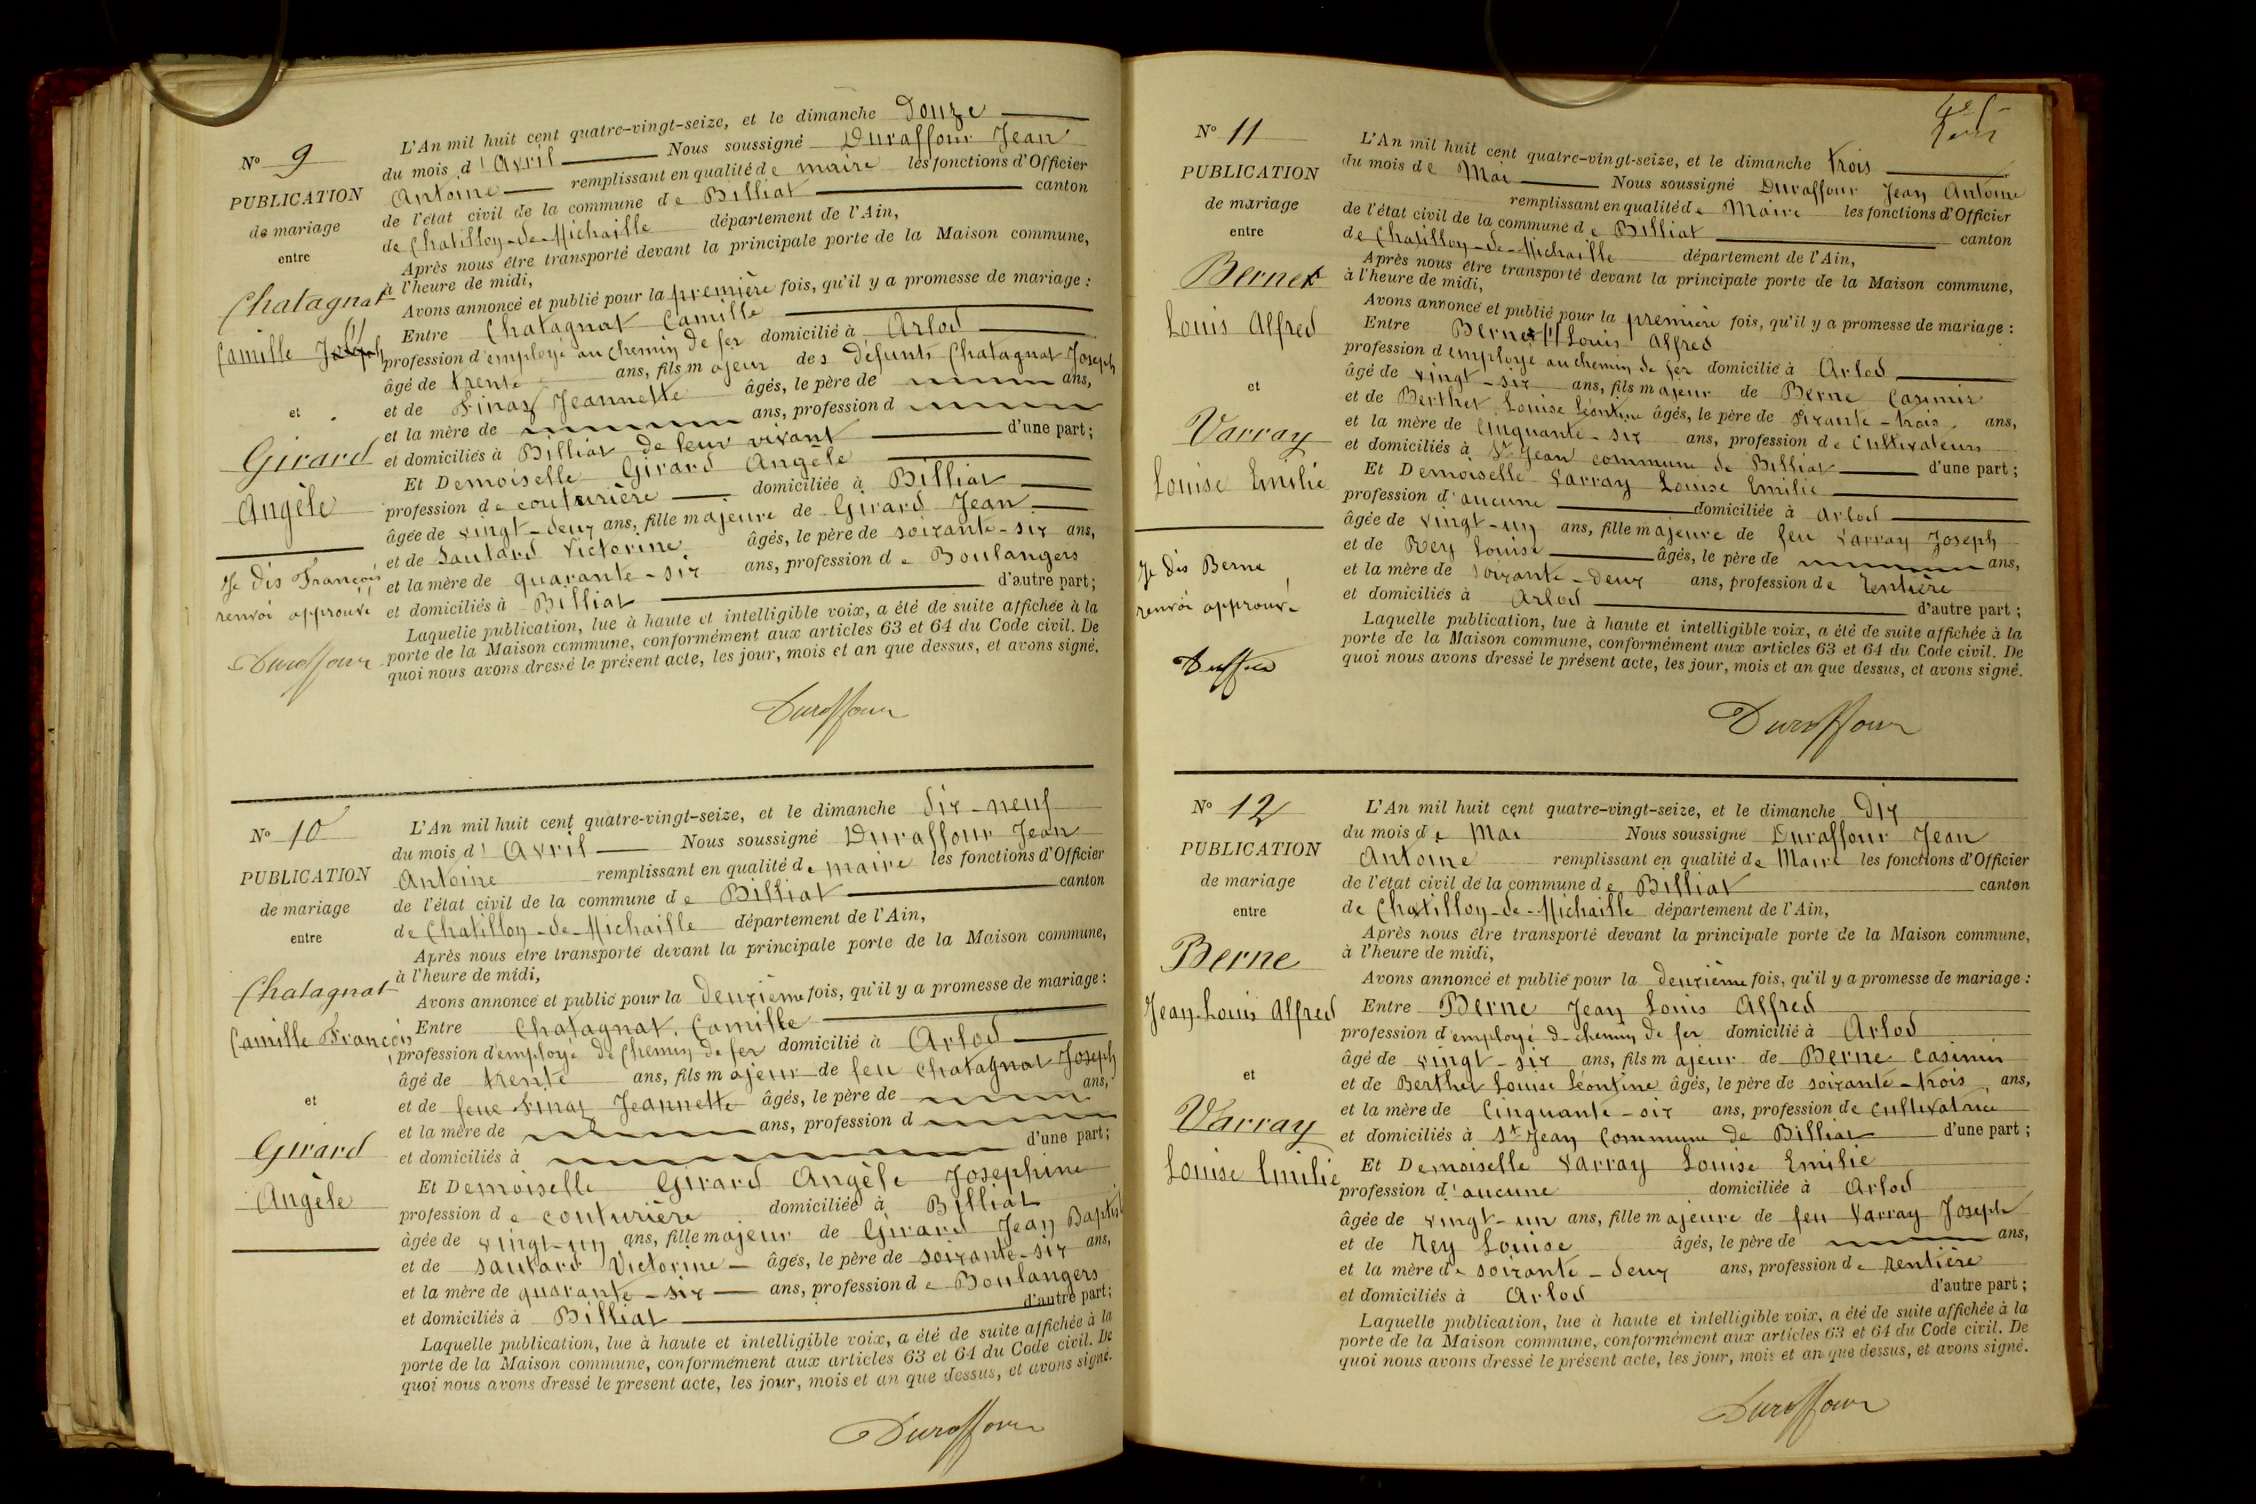 N° 9
PUBLICATION
de mariage
entre
Chatagnat
Camille Joseph (1)
et
Girard
Angèle
Je dis François
renvoi approuvé
Duraffour
L'An mil huit cent quatre-vingt-seize, et le dimanche Douze
du mois d'Avril Nous soussigné Duraffour Jean
Antoine remplissant en qualité de maire les fonctions d'Officier
de l'état civil de la commune de Billiat canton
de Chatillon-de-Michaille département de l'Ain,
Après nous être transporté devant la principale porte de la Maison commune,
à l'heure de midi,
Avons annoncé et publié pour la première fois, qu'il y a promesse de mariage :
Entre Chatagnat Camille
profession d'employé au chemin de fer domicilié à Arlod
âgé de trente ans, fils majeur des défunts Chatagnat Joseph
et de Finaz Jeannette âgés, le père de ans,
et la mère de ans, profession d
et domiciliés à Billiat de leur vivant d'une part ;
Et Demoiselle Girard Angèle
profession de couturière domiciliée à Billiat
âgée de vingt-deux ans, fille majeure de Girard Jean
et de Sautard Victorine âgés, le père de soixante-six ans,
et la mère de quarante-six ans, profession de Boulangers
et domiciliés à Billiat d'autre part ;
Laquelle publication, lue à haute et intelligible voix, a été de suite affichée à la
porte de la Maison commune, conformément aux articles 63 et 64 du Code civil. De
quoi nous avons dressé le présent acte, les jour, mois et an que dessus, et avons signé.
Duraffour
N° 10
PUBLICATION
de mariage
entre
Chatagnat
Camille François
et
Girard
Angèle
L'An mil huit cent quatre-vingt-seize, et le dimanche Dix-neuf
du mois d'Avril Nous soussigné Duraffour Jean
Antoine remplissant en qualité de maire les fonctions d'Officier
de l'état civil de la commune de Billiat canton
de Chatillon-de-Michaille département de l'Ain,
Après nous être transporté devant la principale porte de la Maison commune,
à l'heure de midi,
Avons annoncé et publié pour la deuxième fois, qu'il y a promesse de mariage :
Entre Chatagnat Camille
profession d'employé de Chemin de fer domicilié à Arlod
âgé de trente ans, fils majeur de feu Chatagnat Joseph
et de feue Finaz Jeannette âgés, le père de ans,
et la mère de ans, profession d
et domiciliés à d'une part ;
Et Demoiselle Girard Angèle Josephine
profession de couturière domiciliée à Billiat
âgée de vingt-un ans, fille majeur de Girard Jean Baptist
et de Sautard Victorine âgés, le père de soixante-six ans,
et la mère de quarante-six ans, profession de Boulangers
et domiciliés à Billiat d'autre part ;
Laquelle publication, lue à haute et intelligible voix, a été de suite affichée à la
porte de la Maison commune, conformément aux articles 63 et 64 du Code civil. De
quoi nous avons dressé le présent acte, les jour, mois et an que dessus, et avons signé.
Duraffour
N° 11
PUBLICATION
de mariage
entre
Bernet
Louis Alfred
et
Varray
Louise Emilie
Je dis Berne
renvoi approuvé
L'An mil huit cent quatre-vingt-seize, et le dimanche trois
du mois de Mai Nous soussigné Duraffour Jean Antoine
remplissant en qualité de Maire les fonctions d'Officier
de l'état civil de la commune de Billiat canton
de Chatillon-de-Michaille département de l'Ain,
Après nous être transporté devant la principale porte de la Maison commune,
à l'heure de midi,
Avons annoncé et publié pour la première fois, qu'il y a promesse de mariage :
Entre Bernet (1) Louis Alfred
profession d'employé au chemin de fer domicilié à Arlod
âgé de vingt-six ans, fils majeur de Berne Casimir
et de Berthet Louise Léontine âgés, le père de sixante-trois ans,
et la mère de cinquante-six ans, profession de Cultivateurs
et domiciliés à St Jean commune de Billiat d'une part ;
Et Demoiselle Varray Louise Emilie
profession d'aucune domiciliée à Arlod
âgée de vingt-un ans, fille majeure de feu Varray Joseph
et de Rey Louise âgés, le père de ans,
et la mère de soixante-deux ans, profession de Rentière
et domiciliés à Arlod d'autre part ;
Laquelle publication, lue à haute et intelligible voix, a été de suite affichée à la
porte de la Maison commune, conformément aux articles 63 et 64 du Code civil. De
quoi nous avons dressé le présent acte, les jour, mois et an que dessus, et avons signé.
Duraffour
N° 12
PUBLICATION
de mariage
entre
Berne
Jean-Louis Alfred
et
Varray
Louise Emilie
L'An mil huit cent quatre-vingt-seize, et le dimanche Dix
du mois de Mai Nous soussigné Duraffour Jean
Antoine remplissant en qualité de Maire les fonctions d'Officier
de l'état civil de la commune de Billiat canton
de Chatillon-de-Michaille département de l'Ain,
Après nous être transporté devant la principale porte de la Maison commune,
à l'heure de midi,
Avons annoncé et publié pour la deuxième fois, qu'il y a promesse de mariage :
Entre Berne Jean Louis Alfred
profession d'employé de chemin de fer domicilié à Arlod
âgé de vingt-six ans, fils majeur de Berne Casimir
et de Berthet Louise Léontine âgés, le père de soixante-trois ans,
et la mère de Cinquante-six ans, profession de cultivatrice
et domiciliés à St Jean Commune de Billiat d'une part ;
Et Demoiselle Varray Louise Emilie
profession d'aucune domiciliée à Arlod
âgée de vingt-un ans, fille majeure de feu Varray Joseph
et de Rey Louise âgés, le père de ans,
et la mère de soixante-deux ans, profession de rentière
et domiciliés à Arlod d'autre part ;
Laquelle publication, lue à haute et intelligible voix, a été de suite affichée à la
porte de la Maison commune, conformément aux articles 63 et 64 du Code civil. De
quoi nous avons dressé le présent acte, les jour, mois et an que dessus, et avons signé.
Duraffour